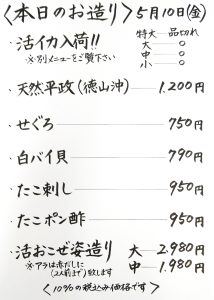 〈本日のお造り〉5月10日(金)
・活イカ入荷!! 特大―品切れ
※別メニューをご覧下さい 大―〇
中―〇
小―〇
・天然平政(徳山沖)―1.200円
・せぐろ―750円
・白バイ貝―790円
・たこ刺し―950円
・たこポン酢―950円
・活おこぜ姿造り 大―2.980円
※アラは赤だしに(2人前まで)致します 中―1.980円
〈10%の税込み価格です〉